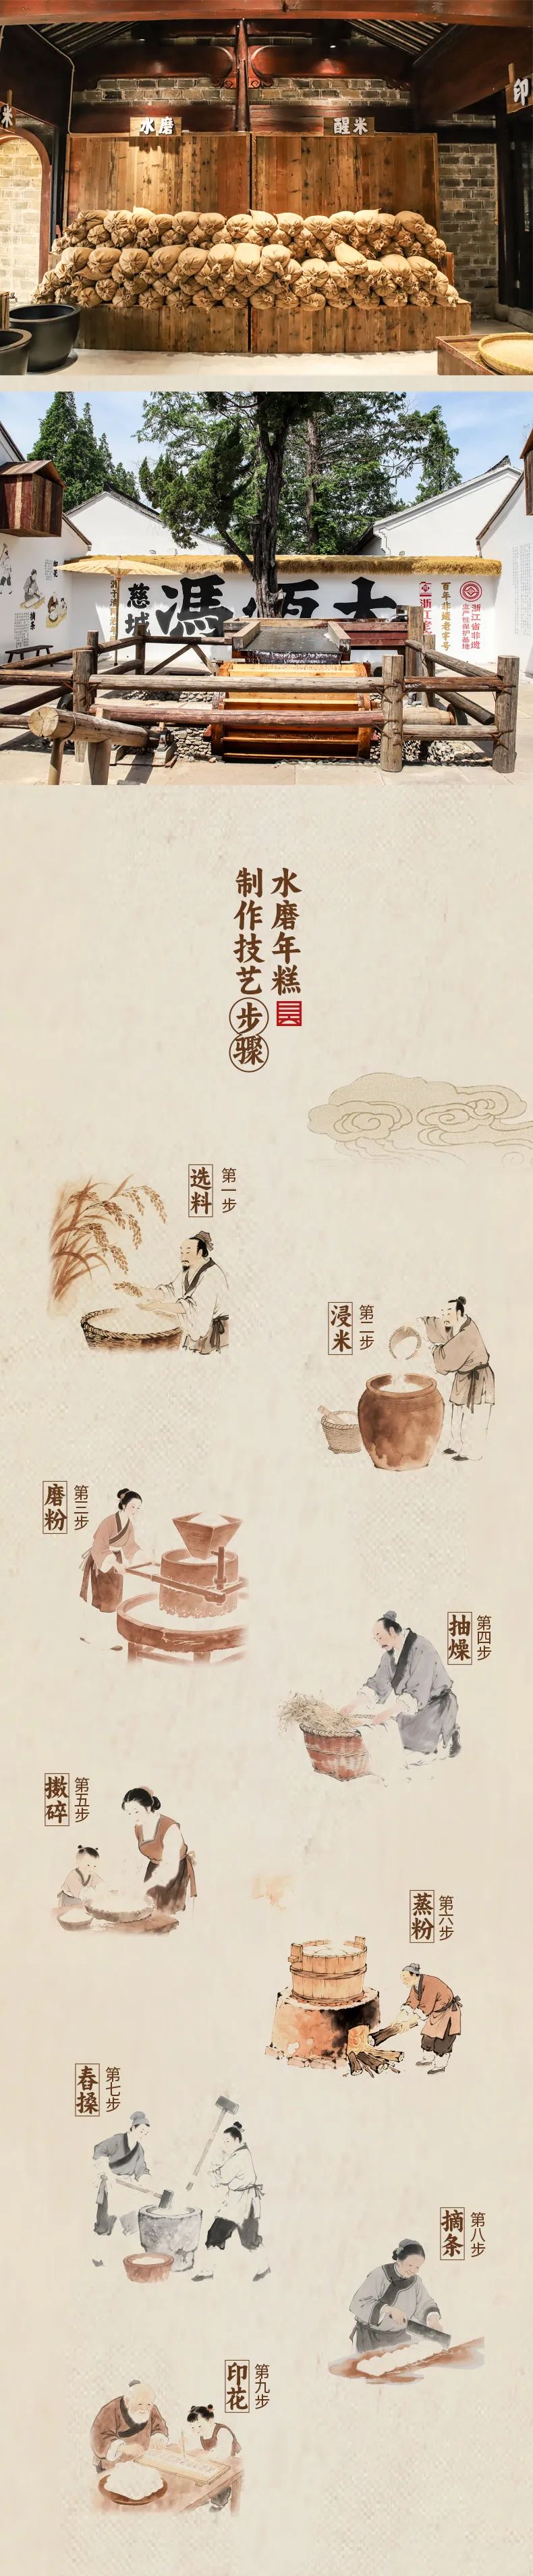 米
水磨
醒米
印
慈城
馮恒大
百年非遗老字号
浙江省非遗
水磨年糕
制作技艺
步骤
第一步
选料
第二步
浸米
第三步
磨粉
第四步
抽燥
第五步
擞碎
第六步
蒸粉
第七步
舂搡
第八步
摘条
第九步
印花